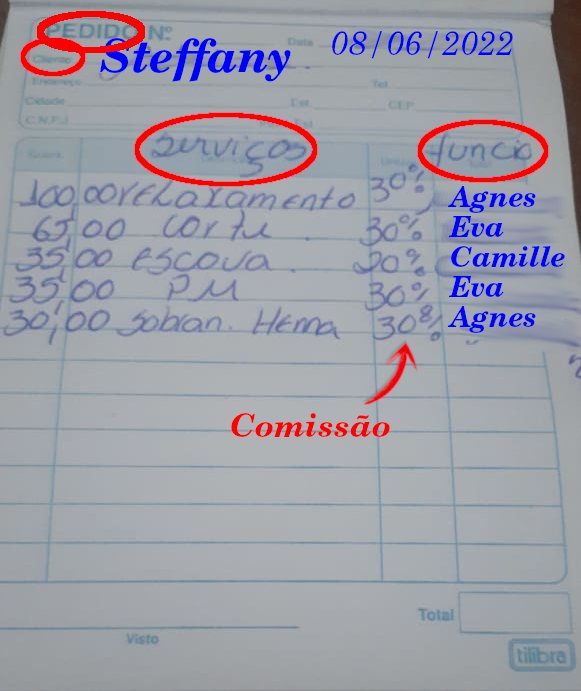 PEDIDO Nº
Data 08/06/2022
Cliente Steffany
Endereço Tel.
Cidade Est. CEP
C.N.P.J. Est.
Quant. serviços funcio
100,00 relaxamento 30% Agnes
65,00 corte 30% Eva
35,00 escova. 20% Camille
35,00 P.M 30% Eva
30,00 sobran. Hena 30% Agnes
Comissão
Total
Visto
tilibra